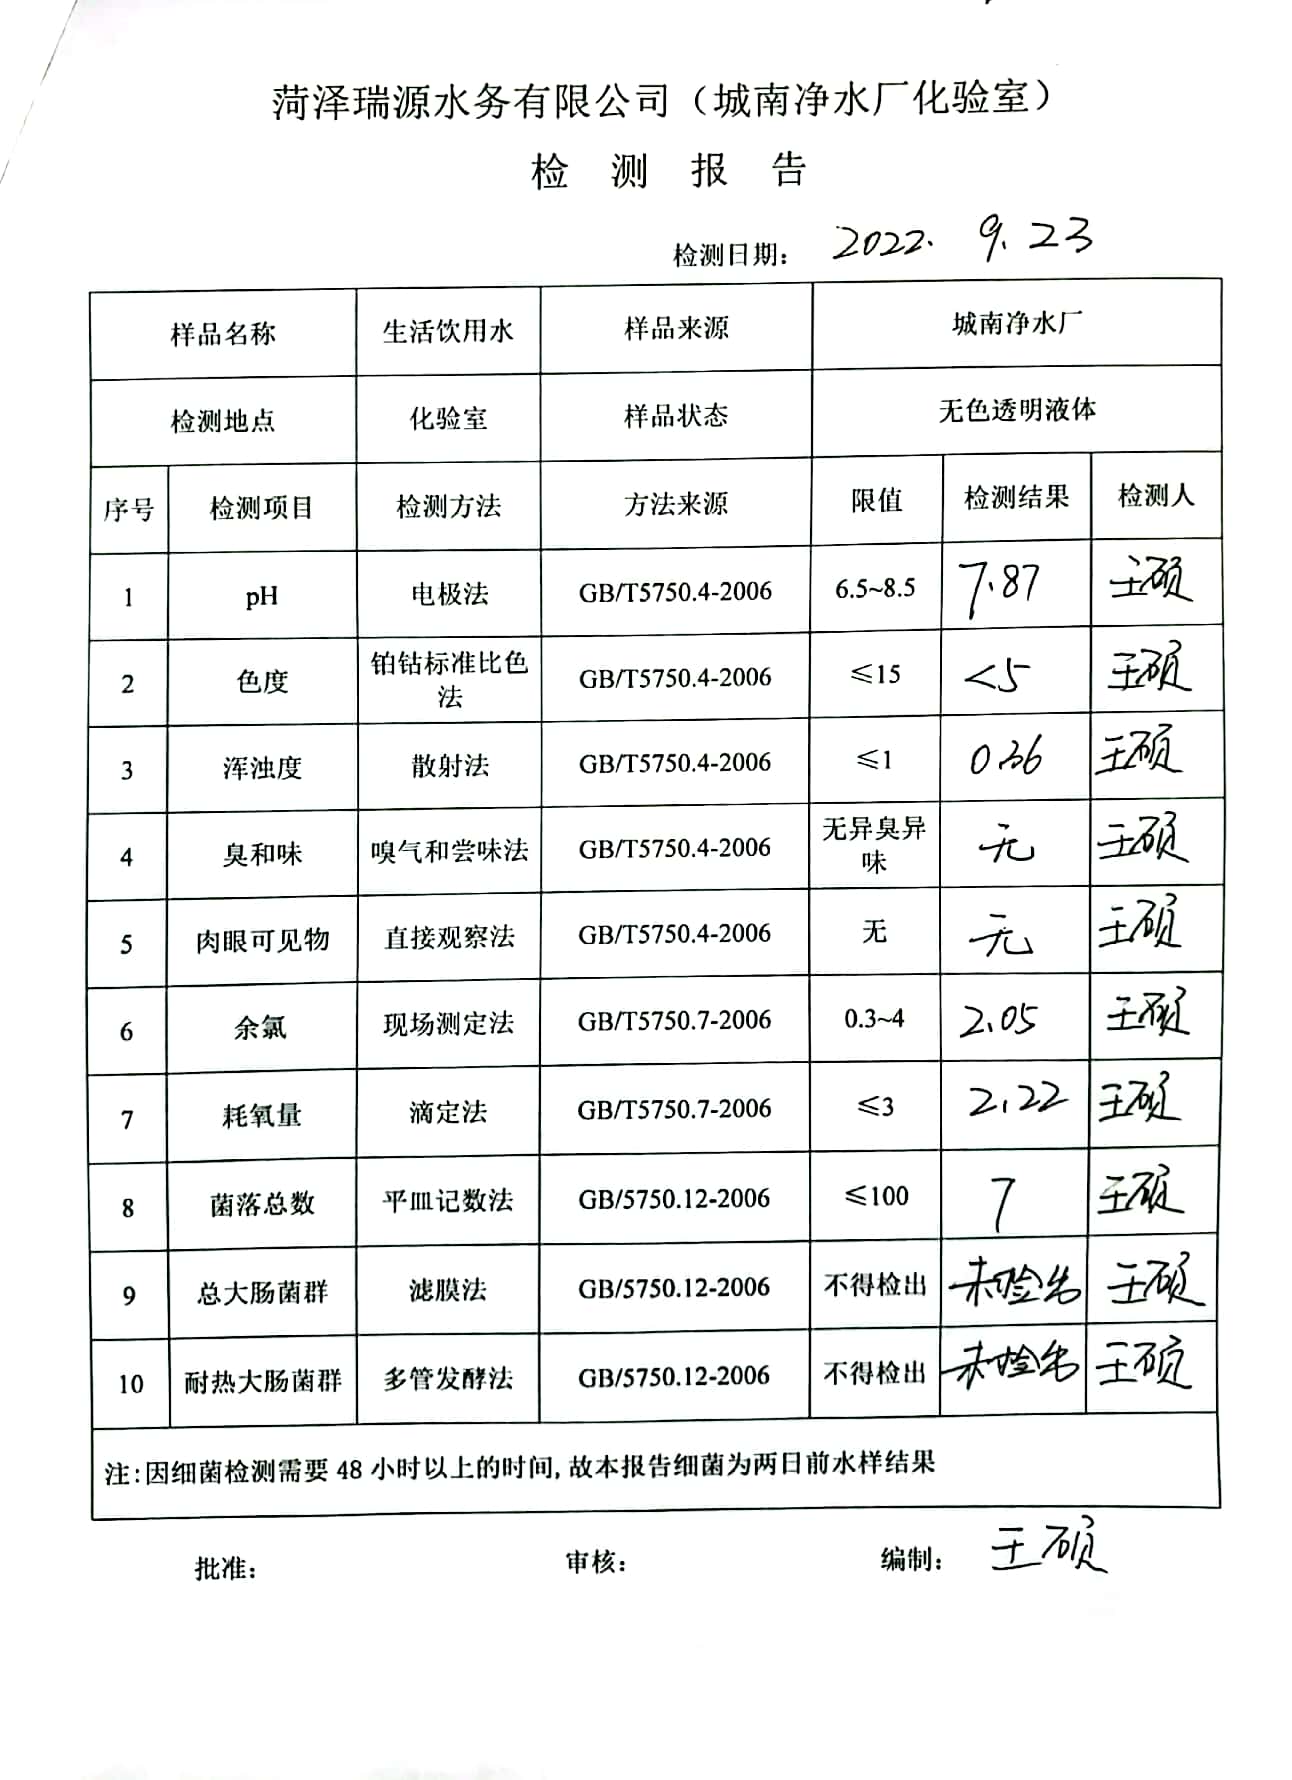 菏泽瑞源水务有限公司（城南净水厂化验室）
检 测 报 告
检测日期： 2022. 9. 23
样品名称 生活饮用水 样品来源 城南净水厂
检测地点 化验室 样品状态 无色透明液体
序号 检测项目 检测方法 方法来源 限值 检测结果 检测人
1 pH 电极法 GB/T5750.4-2006 6.5~8.5 7.87 王硕
2 色度 铂钴标准比色法 GB/T5750.4-2006 ≤15 <5 王硕
3 浑浊度 散射法 GB/T5750.4-2006 ≤1 0.36 王硕
4 臭和味 嗅气和尝味法 GB/T5750.4-2006 无异臭异味 无 王硕
5 肉眼可见物 直接观察法 GB/T5750.4-2006 无 无 王硕
6 余氯 现场测定法 GB/T5750.7-2006 0.3~4 2.05 王硕
7 耗氧量 滴定法 GB/T5750.7-2006 ≤3 2.22 王硕
8 菌落总数 平皿记数法 GB/5750.12-2006 ≤100 7 王硕
9 总大肠菌群 滤膜法 GB/5750.12-2006 不得检出 未检出 王硕
10 耐热大肠菌群 多管发酵法 GB/5750.12-2006 不得检出 未检出 王硕
注：因细菌检测需要 48 小时以上的时间，故本报告细菌为两日前水样结果
批准： 审核： 编制： 王硕